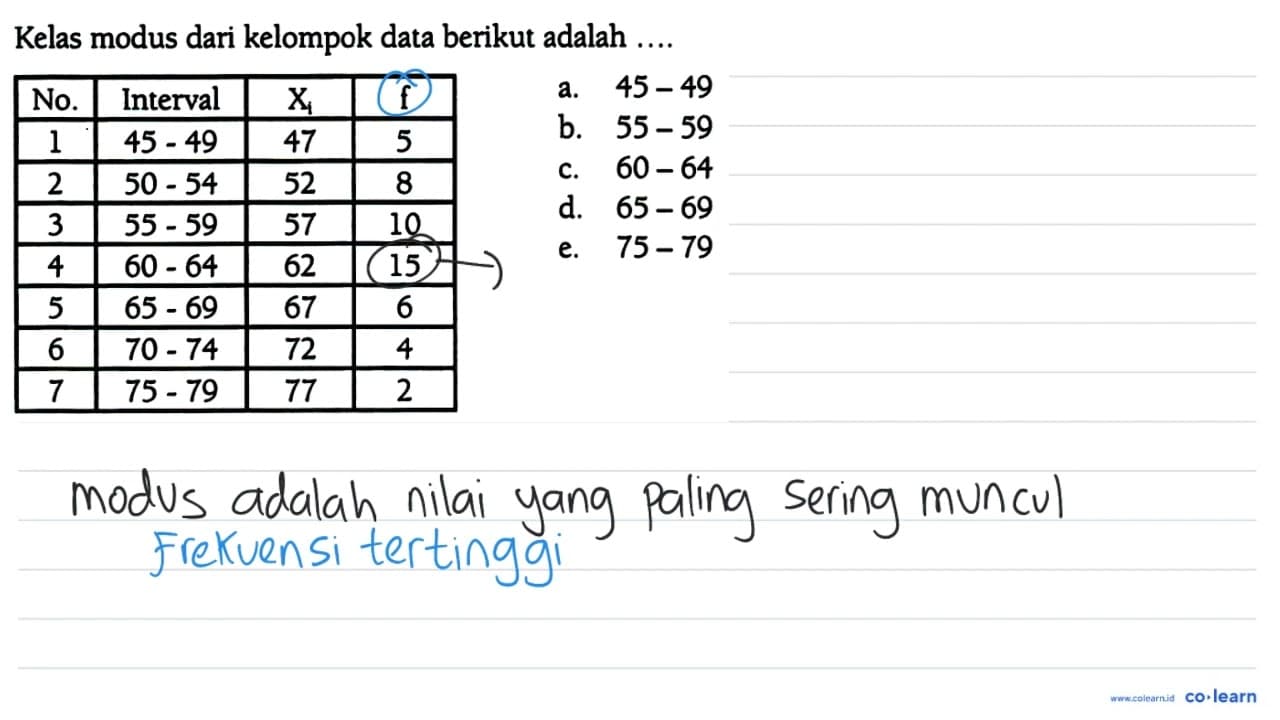 Kelas modus dari kelompok data berikut adalah ....
No. Interval Xi f
1 45 - 49 47 5
2 50 - 54 52 8
3 55 - 59 57 10
4 60 - 64 62 15
5 65 - 69 67 6
6 70 - 74 72 4
7 75 - 79 77 2
a. 45 – 49
b. 55 – 59
c. 60 – 64
d. 65 – 69
e. 75 – 79
modus adalah nilai yang paling sering muncul
Frekuensi tertinggi
www.colearn.id co·learn